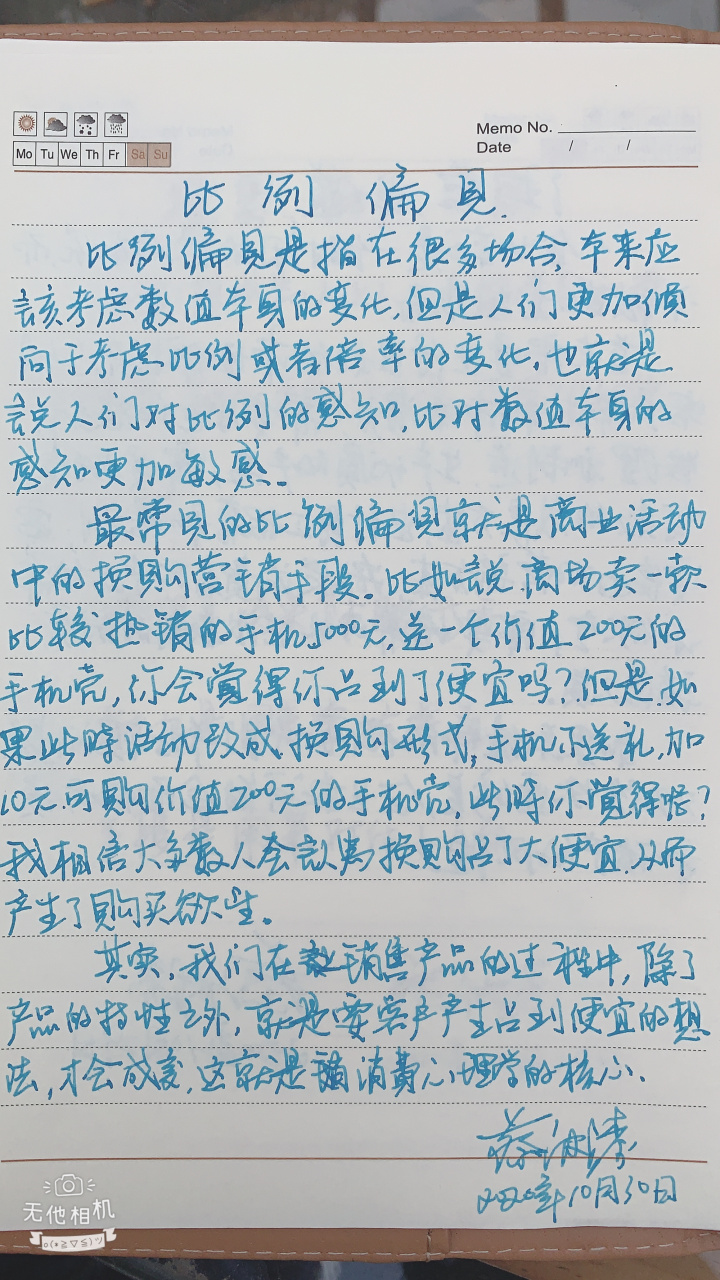 Memo No.
Mo Tu We Th Fr Sa Su
Date / /
比例偏見.
比例偏見是指在很多场合,本来应
該考虑数值本身的变化,但是人们更加倾
向于考虑比例或者倍率的变化,也就是
説人们对比例的感知,比对数值本身的
感知更加敏感。
最常見的比例偏見就是商业活动
中的换購营销手段。比如説商场卖一款
比较热销的手机5000元,送一个价值200元的
手机壳,你会覺得你占到了便宜吗?但是如
果此時活动改成换購形式,手机不送礼,加
10元可購价值200元的手机壳,此時你覺得呢?
我相信大多数人会認為换購占了大便宜,从而
产生了購买欲望。
其实,我们在銷售产品的过程中,除了
产品的特性之外,就是要客户产生占到便宜的想
法,才会成交,这就是消費心理学的核心.
2020年10月30日
无他相机
o(*≧▽≦)ツ